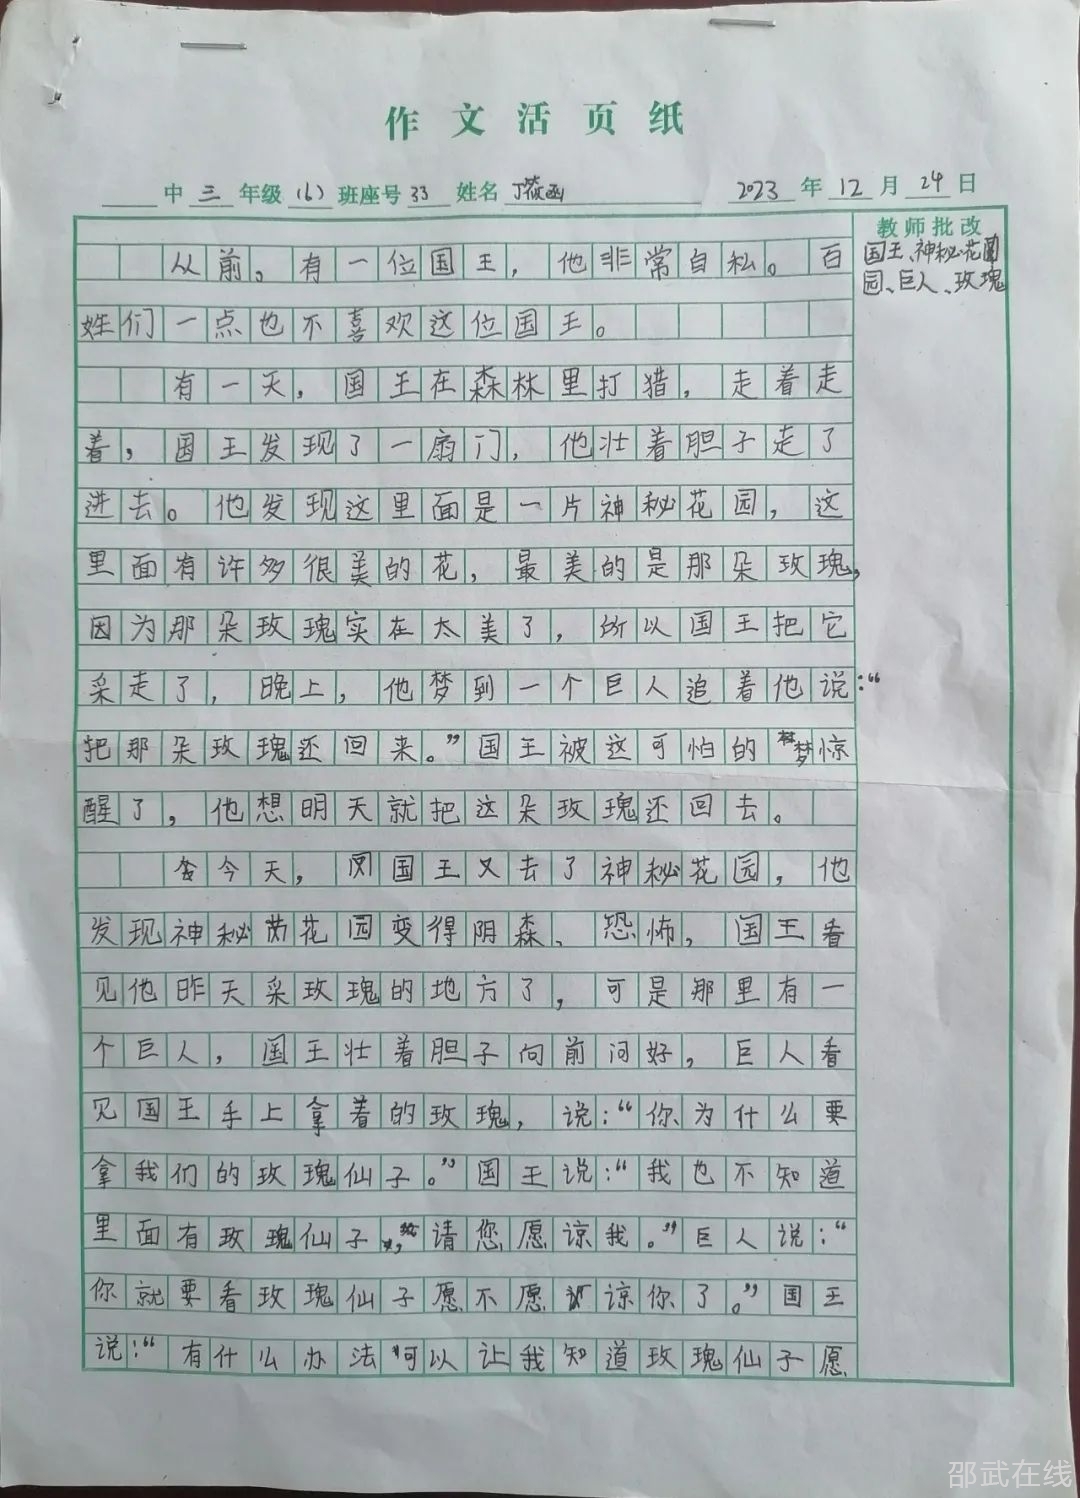 作文活页纸
中三年级(6)班座号33 姓名丁筱函 2023年12月24日
教师批改
国王、神秘花
园、巨人、玫瑰
从前。有一位国王，他非常自私。百
姓们一点也不喜欢这位国王。
有一天，国王在森林里打猎，走着走
着，国王发现了一扇门，他壮着胆子走了
进去。他发现这里面是一片神秘花园，这
里面有许多很美的花，最美的是那朵玫瑰，
因为那朵玫瑰实在太美了，所以国王把它
采走了，晚上，他梦到一个巨人追着他说：“
把那朵玫瑰还回来。”国王被这可怕的梦惊
醒了，他想明天就把这朵玫瑰还回去。
今天，国王又去了神秘花园，他
发现神秘花园变得阴森、恐怖，国王看
见他昨天采玫瑰的地方了，可是那里有一
个巨人，国王壮着胆子向前问好，巨人看
见国王手上拿着的玫瑰，说：“你为什么要
拿我们的玫瑰仙子。”国王说：“我也不知道
里面有玫瑰仙子，请您愿谅我。”巨人说：“
你就要看玫瑰仙子愿不愿谅你了。”国王
说：“有什么办法可以让我知道玫瑰仙子愿
邵武在线